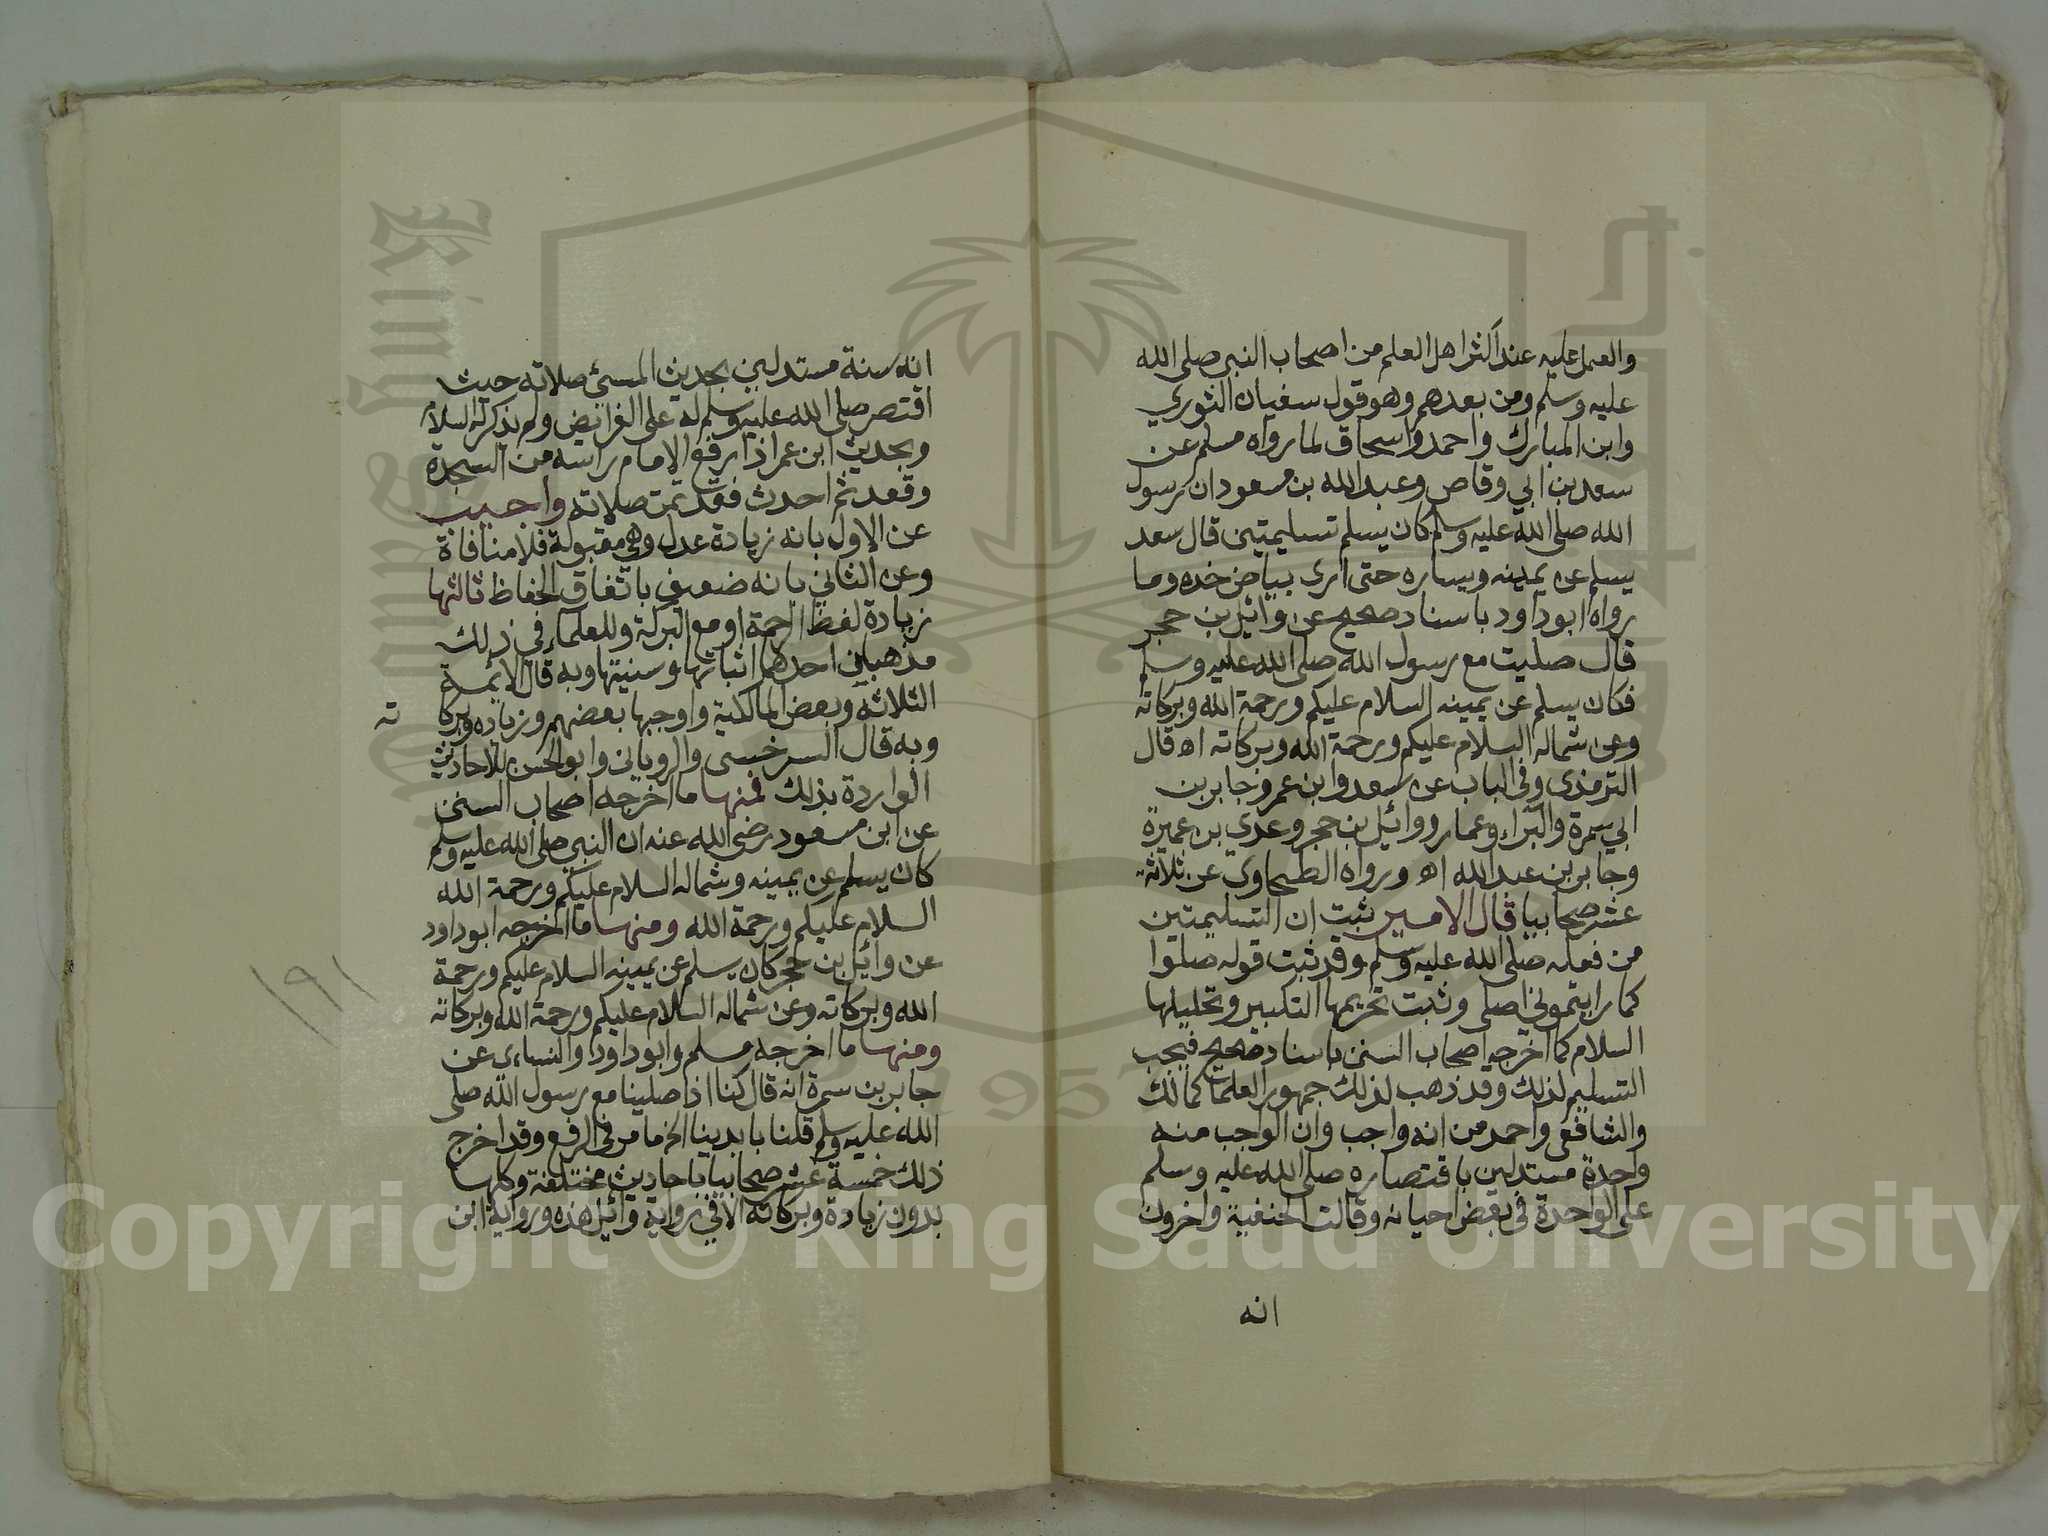 والعمل عليه عند أكثر اهل العلم من اصحاب النبي صلى الله
عليه وسلم ومن بعدهم وهو قول سفيان الثوري
وابن المبارك واحمد واسحاق لما رواه مسلم عن
سعد بن ابي وقاص وعبد الله بن مسعود ان رسول
الله صلى الله عليه وسلم كان يسلم تسليمتين قال سعد
يسلم عن يمينه ويساره حتى ارى بياض خده وما
رواه ابو داود باسناد صحيح عن وائل بن حجر
قال صليت مع رسول الله صلى الله عليه وسلم
فكان يسلم عن يمينه السلام عليكم ورحمة الله وبركاته
وعن شماله السلام عليكم ورحمة الله وبركاته اه قال
الترمذى وفى الباب عن سعد وابن عمر وجابر بن
ابي سمرة والبراء وعمار ووائل بن حجر وعدي بن عميرة
وجابر بن عبد الله اه ورواه الطحاوي عن ثلاثة
عشر صحابيا قال الامير ثبت ان التسليمتين
من فعله صلى الله عليه وسلم وقد ثبت قوله صلوا
كما رايتموني اصلي وثبت تحريمها التكبير وتحليلها
السلام كما اخرجه اصحاب السنن باسناد صحيح فيجب
التسليم لذلك وقد ذهب لذلك جمهور العلماء كمالك
والشافعى واحمد من انه واجب وان الواجب منه
واحدة مستدلين باقتصاره صلى الله عليه وسلم
على الواحدة فى بعض احيانه وقالت الحنفية واخرون
انه
انه سنة مستدلين بحديث المسئ صلاته حيث
اقتصر صلى الله عليه وسلم له على الفرايض ولم يذكر له السلام
وبحديث ابن عمر اذا رفع الامام راسه من السجدة
وقعد ثم احدث فقد تمت صلاته واجيب
عن الاول بانه زيادة عدل وهي مقبولة فلا منافاة
وعن الثاني بانه ضعيف باتفاق الحفاظ ثالثها
زيادة لفظ الرحمة او مع البركة وللعلماء في ذلك
مذهبان احدهما اثباتها وسنيتها وبه قال الايمة
الثلاثة وبعض المالكية واوجبها بعضهم وزياده وبركاته
وبه قال السرخسى والروياني وابو الحسن للاحاديث
الواردة بذلك فمنها ما اخرجه اصحاب السنن
عن ابن مسعود رضى الله عنه ان النبي صلى الله عليه وسلم
كان يسلم عن يمينه وشماله السلام عليكم ورحمة الله
السلام عليكم ورحمة الله ومنها ما اخرجه ابو داود
عن وائل بن حجر كان يسلم عن يمينه السلام عليكم ورحمة
الله وبركاته وعن شماله السلام عليكم ورحمة الله وبركاته
ومنها ما اخرجه مسلم وابو داود والنساءى عن
جابر بن سمرة انه قال كنا اذا صلينا مع رسول الله صلى
الله عليه وسلم قلنا بايدينا الخ ما مر في الرفع وقد اخرج
ذلك خمسة عشر صحابيا باحاديث مختلفة وكلها
بدون زيادة وبركاته الا في رواية وائل هذه ورواية ابن
١٩١
King Saud University
1957
Copyright © King Saud University